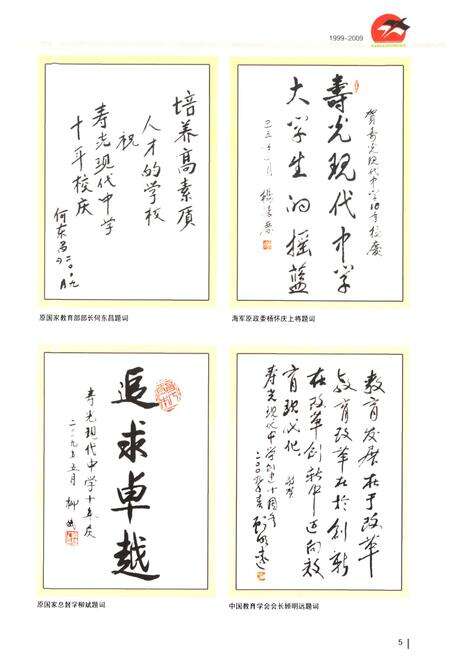 1999-2009
培养高素质
人才的学校
祝
寿光现代中学
十年校庆
何东昌
原国家教育部部长何东昌题词
贺寿光现代中学10年校庆
壽光现代中学
大学生的摇蓝
杨怀庆
海军原政委杨怀庆上将题词
追求卓越
寿光现代中学十年庆
二〇〇九年五月 柳斌
原国家总督学柳斌题词
教育发展在于改革
教育改革在于创新
在改革创新中迈向教
育现代化
寿光现代中学创建十周年
顾明远
中国教育学会会长顾明远题词
5